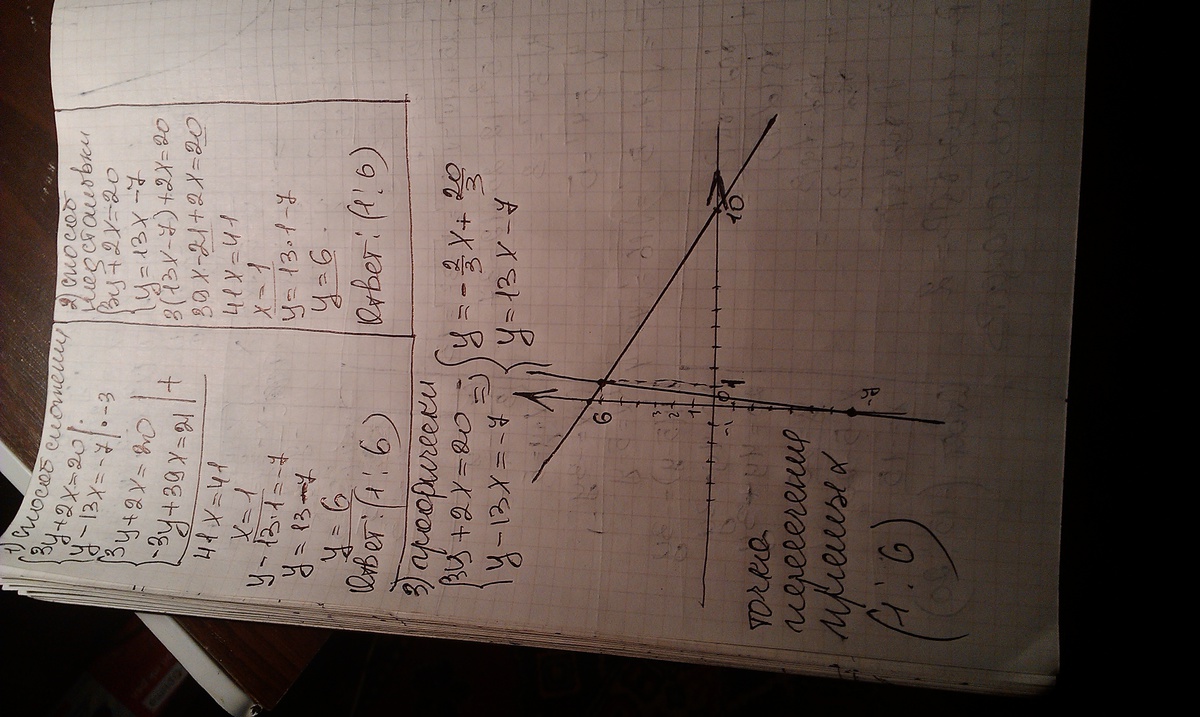 1) способ сложения
{3y+2x=20
y-13x=-7 |·-3
{3y+2x=20 | +
-3y+39x=21
41x=41
x=1
y-13·1=-7
y=13-7
y=6
Ответ: (1;6)
2 способ
подстановки
{3y+2x=20
y=13x-7
3(13x-7)+2x=20
39x-21+2x=20
41x=41
x=1
y=13·1-7
y=6
Ответ: (1;6)
3) графически
{3y+2x=20 => {y=-2/3x+20/3
y-13x=-7 y=13x-7
6
3
2
1
0
1
10
-1
-7
точка
пересечения
прямых
(1;6)